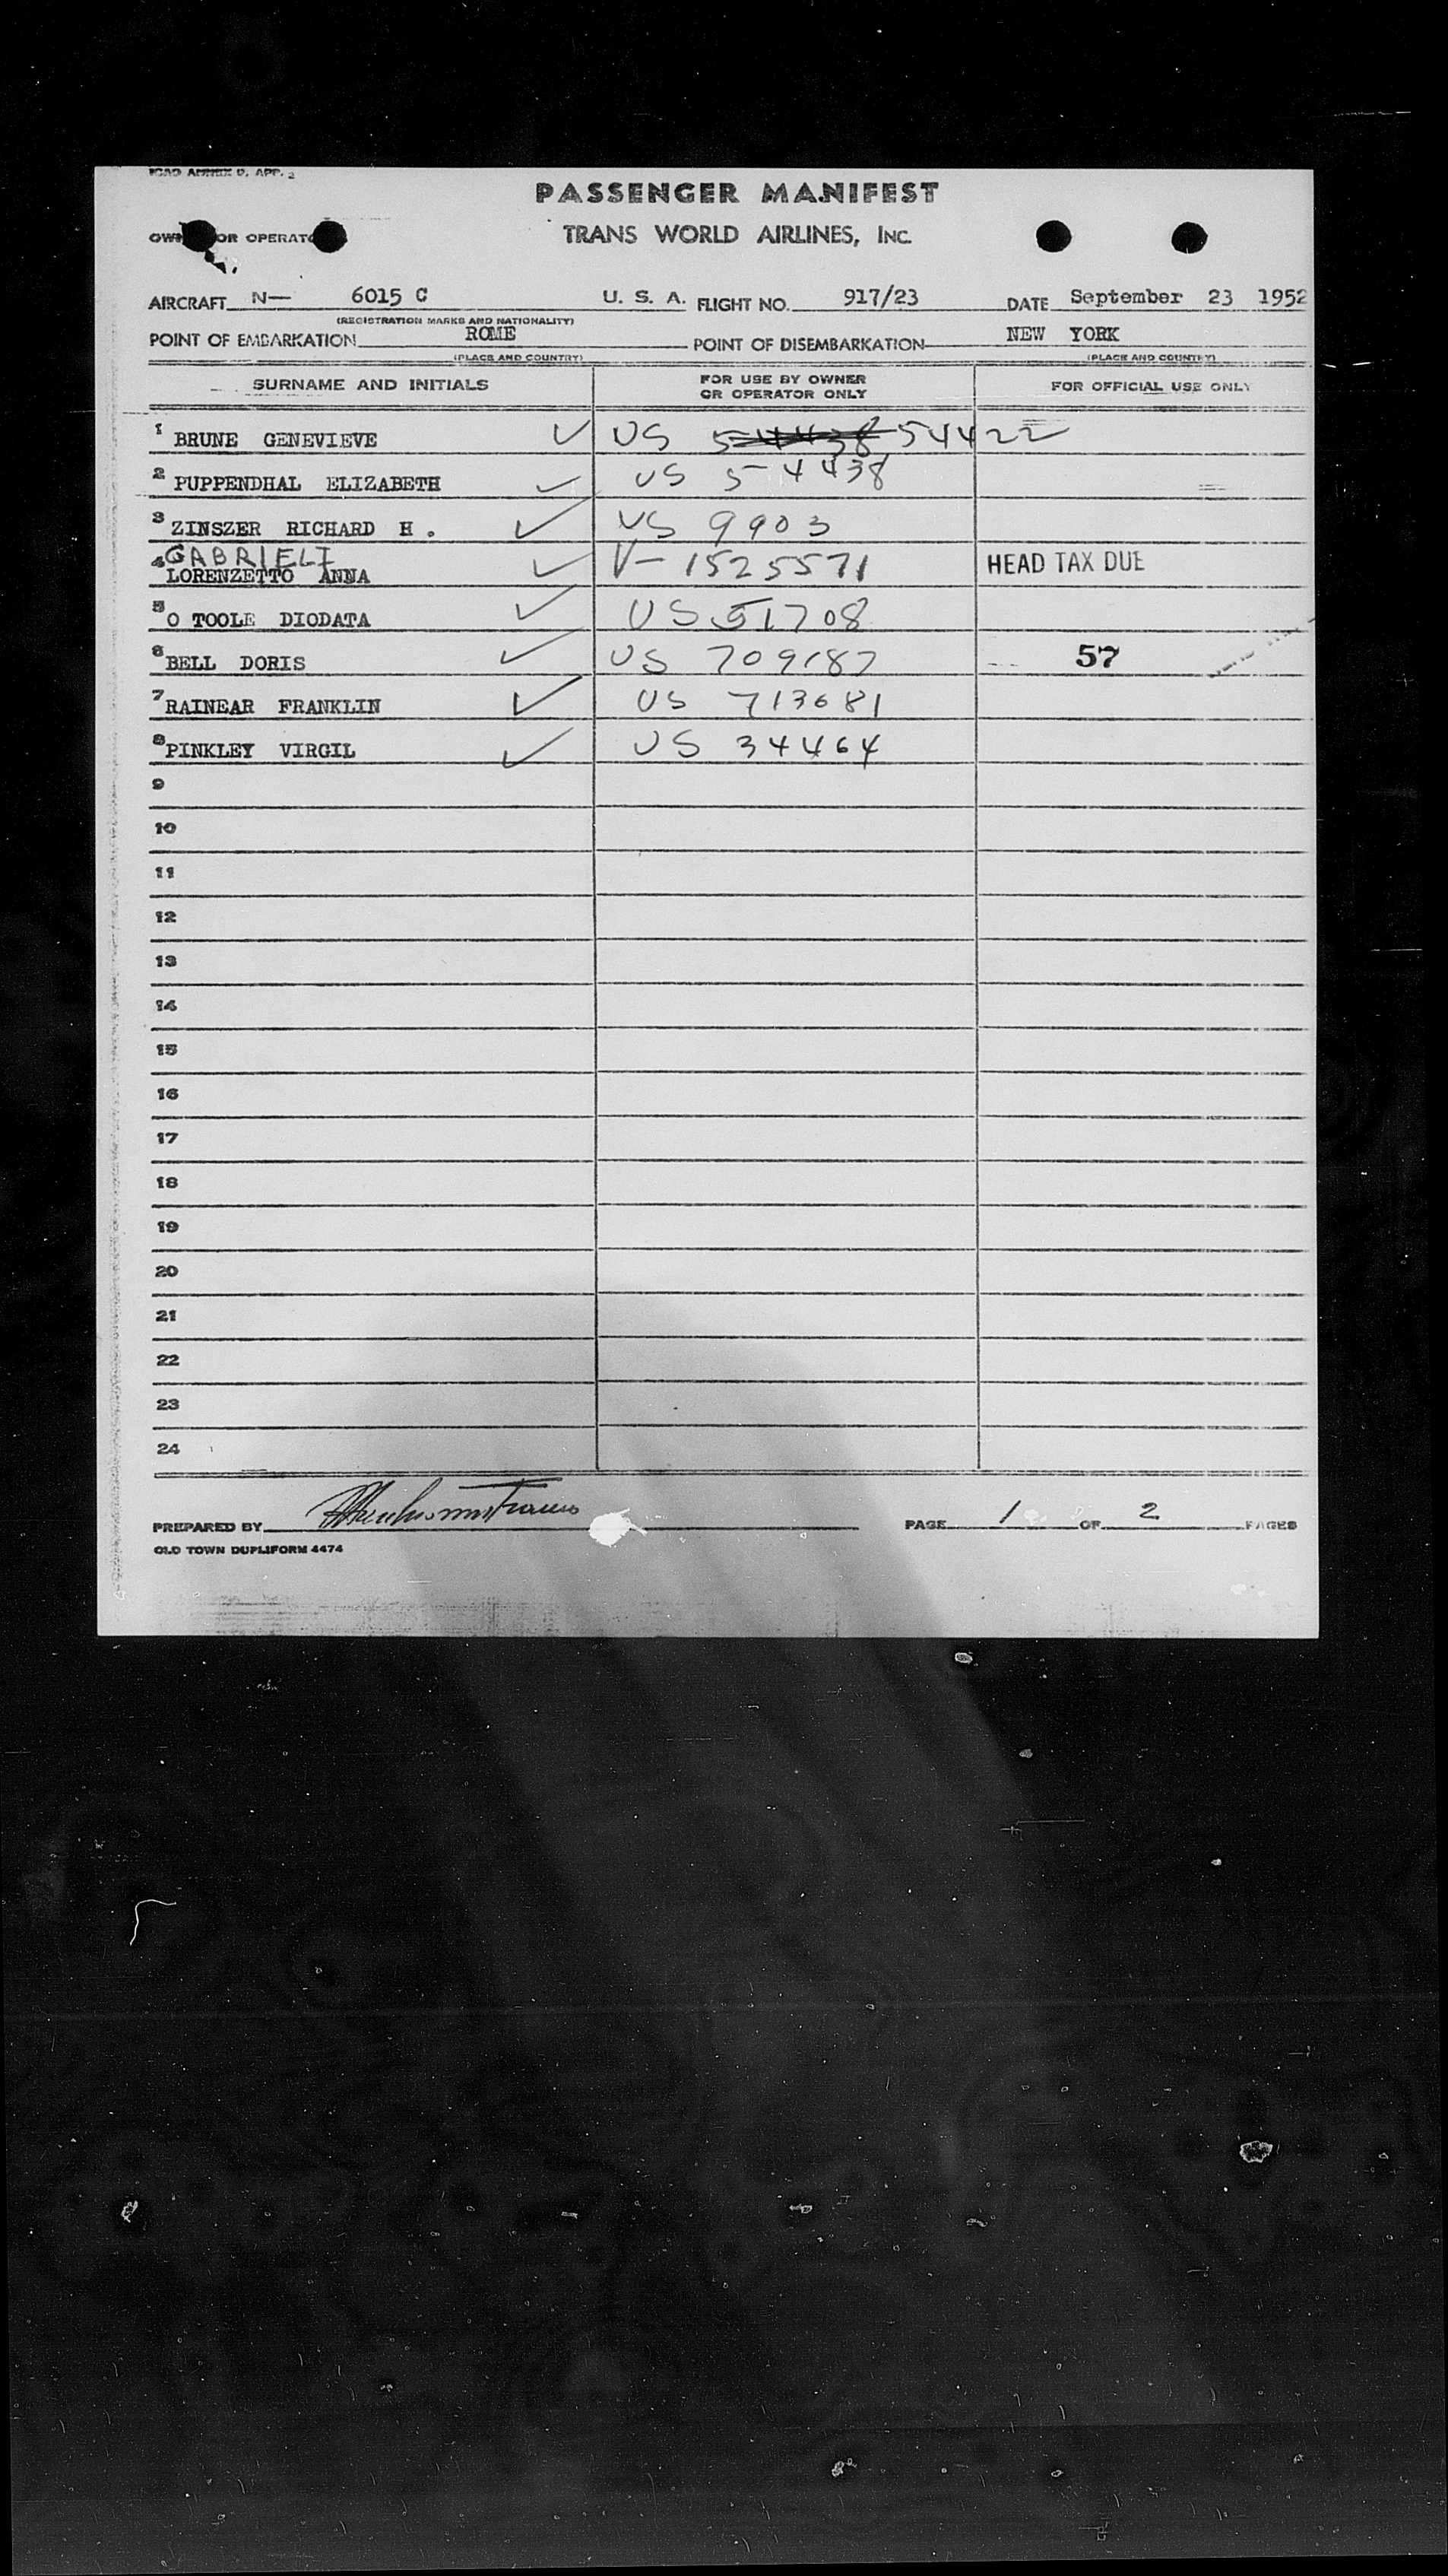 ICAO ANNEX 9, APP. 2
PASSENGER MANIFEST
OWNER OR OPERATOR TRANS WORLD AIRLINES, INC.
AIRCRAFT N— 6015 C U. S. A. FLIGHT NO. 917/23 DATE September 23 1952
(REGISTRATION MARKS AND NATIONALITY)
POINT OF EMBARKATION ROME POINT OF DISEMBARKATION NEW YORK
(PLACE AND COUNTRY) (PLACE AND COUNTRY)
SURNAME AND INITIALS FOR USE BY OWNER OR OPERATOR ONLY FOR OFFICIAL USE ONLY
1 BRUNE GENEVIEVE ✓ US 54438 54422
2 PUPPENDHAL ELIZABETH ✓ US 54438
3 ZINSZER RICHARD H. ✓ US 9903
GABRIELI
4 LORENZETTO ANNA ✓ V-1525571 HEAD TAX DUE
5 O TOOLE DIODATA ✓ US 51708
6 BELL DORIS ✓ US 709187 57
7 RAINEAR FRANKLIN ✓ US 713681
8 PINKLEY VIRGIL ✓ US 34464
9
10
11
12
13
14
15
16
17
18
19
20
21
22
23
24
PREPARED BY PAGE 1 OF 2 PAGES
OLD TOWN DUPLIFORM 4474